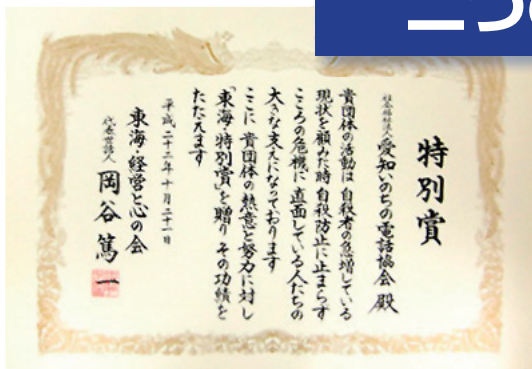 特別賞
社会福祉法人 愛知いのちの電話協会 殿
貴団体の活動は 自殺者の急増している
現状を顧みた時 自殺防止に止まらず
こころの危機に 直面している人たちの
大きな支えになっております
ここに 貴団体の熱意と努力に対し
「東海・特別賞」を贈り その功績を
たたえます
平成二十二年十月二十一日
東海・経営と心の会
代表世話人 岡谷篤一